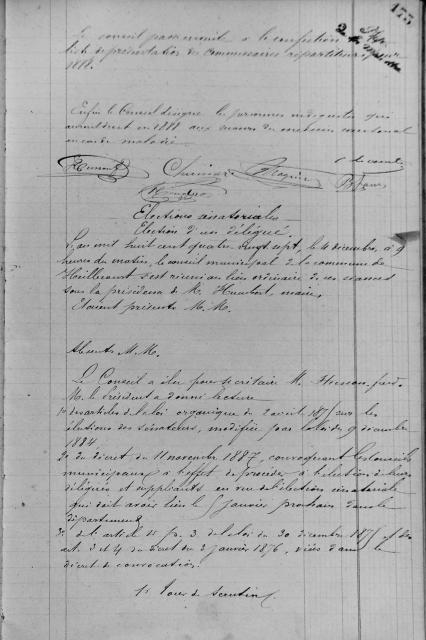 177
Le conseil passe ensuite à la confection
liste de présentation des commissaires répartiteurs pour
1888.
Enfin le Conseil désigne les personnes indiquées qui
auront droit en 1888 aux secours du médecin cantonal
en cas de maladie.
Élections sénatoriales
Élection d'un délégué.
L'an mil huit cent quatre vingt sept, le 4 décembre, à 9
heures du matin, le conseil municipal de la commune de
s'est réuni au lieu ordinaire de ses séances
sous la présidence de M. Humbert, maire,
Étaient présents M.M.
Absents M.M.
Le Conseil a élu pour secrétaire M.
M. le Président a donné lecture
1° des articles de la loi organique du 2 août 1875 sur les
élections des sénateurs, modifiée par la loi du 9 décembre
1884
2° du décret du 11 novembre 1887, convoquant les conseils
municipaux à l'effet de procéder à l'élection de leurs
délégués et suppléants en vue de l'élection sénatoriale
qui doit avoir lieu le 5 janvier prochain dans le
département
3° de l'article 4 p. 3 de la loi du 30 décembre 1875 et des
art. 3 et 4 du décret du 3 janvier 1876, visés dans le
décret de convocation.
1er Tour de scrutin